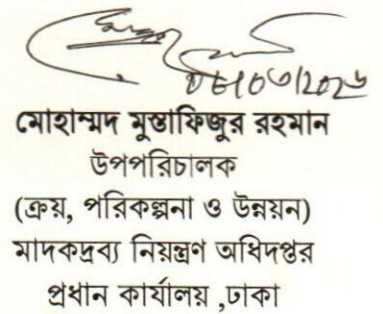 ০৮/০৩/২০২৬
মোহাম্মদ মুস্তাফিজুর রহমান
উপপরিচালক
(ক্রয়, পরিকল্পনা ও উন্নয়ন)
মাদকদ্রব্য নিয়ন্ত্রণ অধিদপ্তর
প্রধান কার্যালয় ,ঢাকা